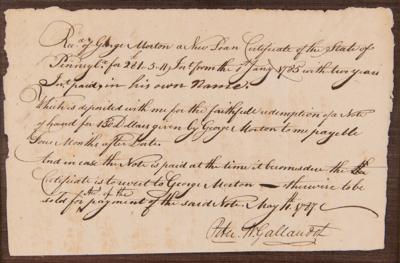 Rec.d of George Morton a New Loan Certificate of the State of
Pennyl.a for 281.3.11 Int. from the 1st Jany 1785 with two years
Int. paid, in his own Name.
Which is deposited with me for the faithfull redemption of a Note
of hand for 150 Dollars given by George Morton to me payable
Four Months after Date
And in case the Note is paid at the time it becomes due the
Certificate is to revert to George Morton — otherwise to be
sold for payment of the said Note May 11. 1787
Peter W. Gallaudet